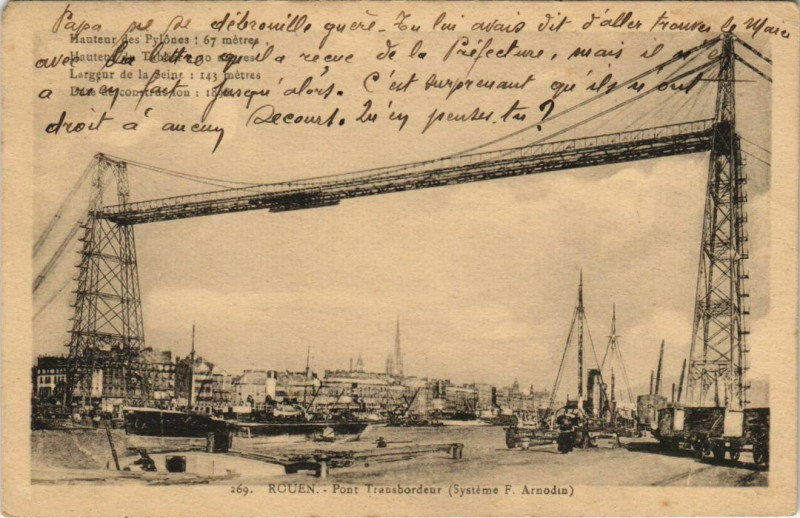 Papa ne se débrouille guère. Tu lui avais dit d'aller trouver le Maire
avec la lettre qu'il a reçue de la Préfecture, mais il
a pas fait jusqu'alors. C'est surprenant qu'ils n'ont
droit à aucun secours. Qu'en penses-tu ?
Hauteur des Pylônes : 67 mètres
Hauteur du Tablier : 50 mètres
Largeur de la Seine : 143 mètres
Date de construction :
269. ROUEN. - Pont Transbordeur (Système F. Arnodin)